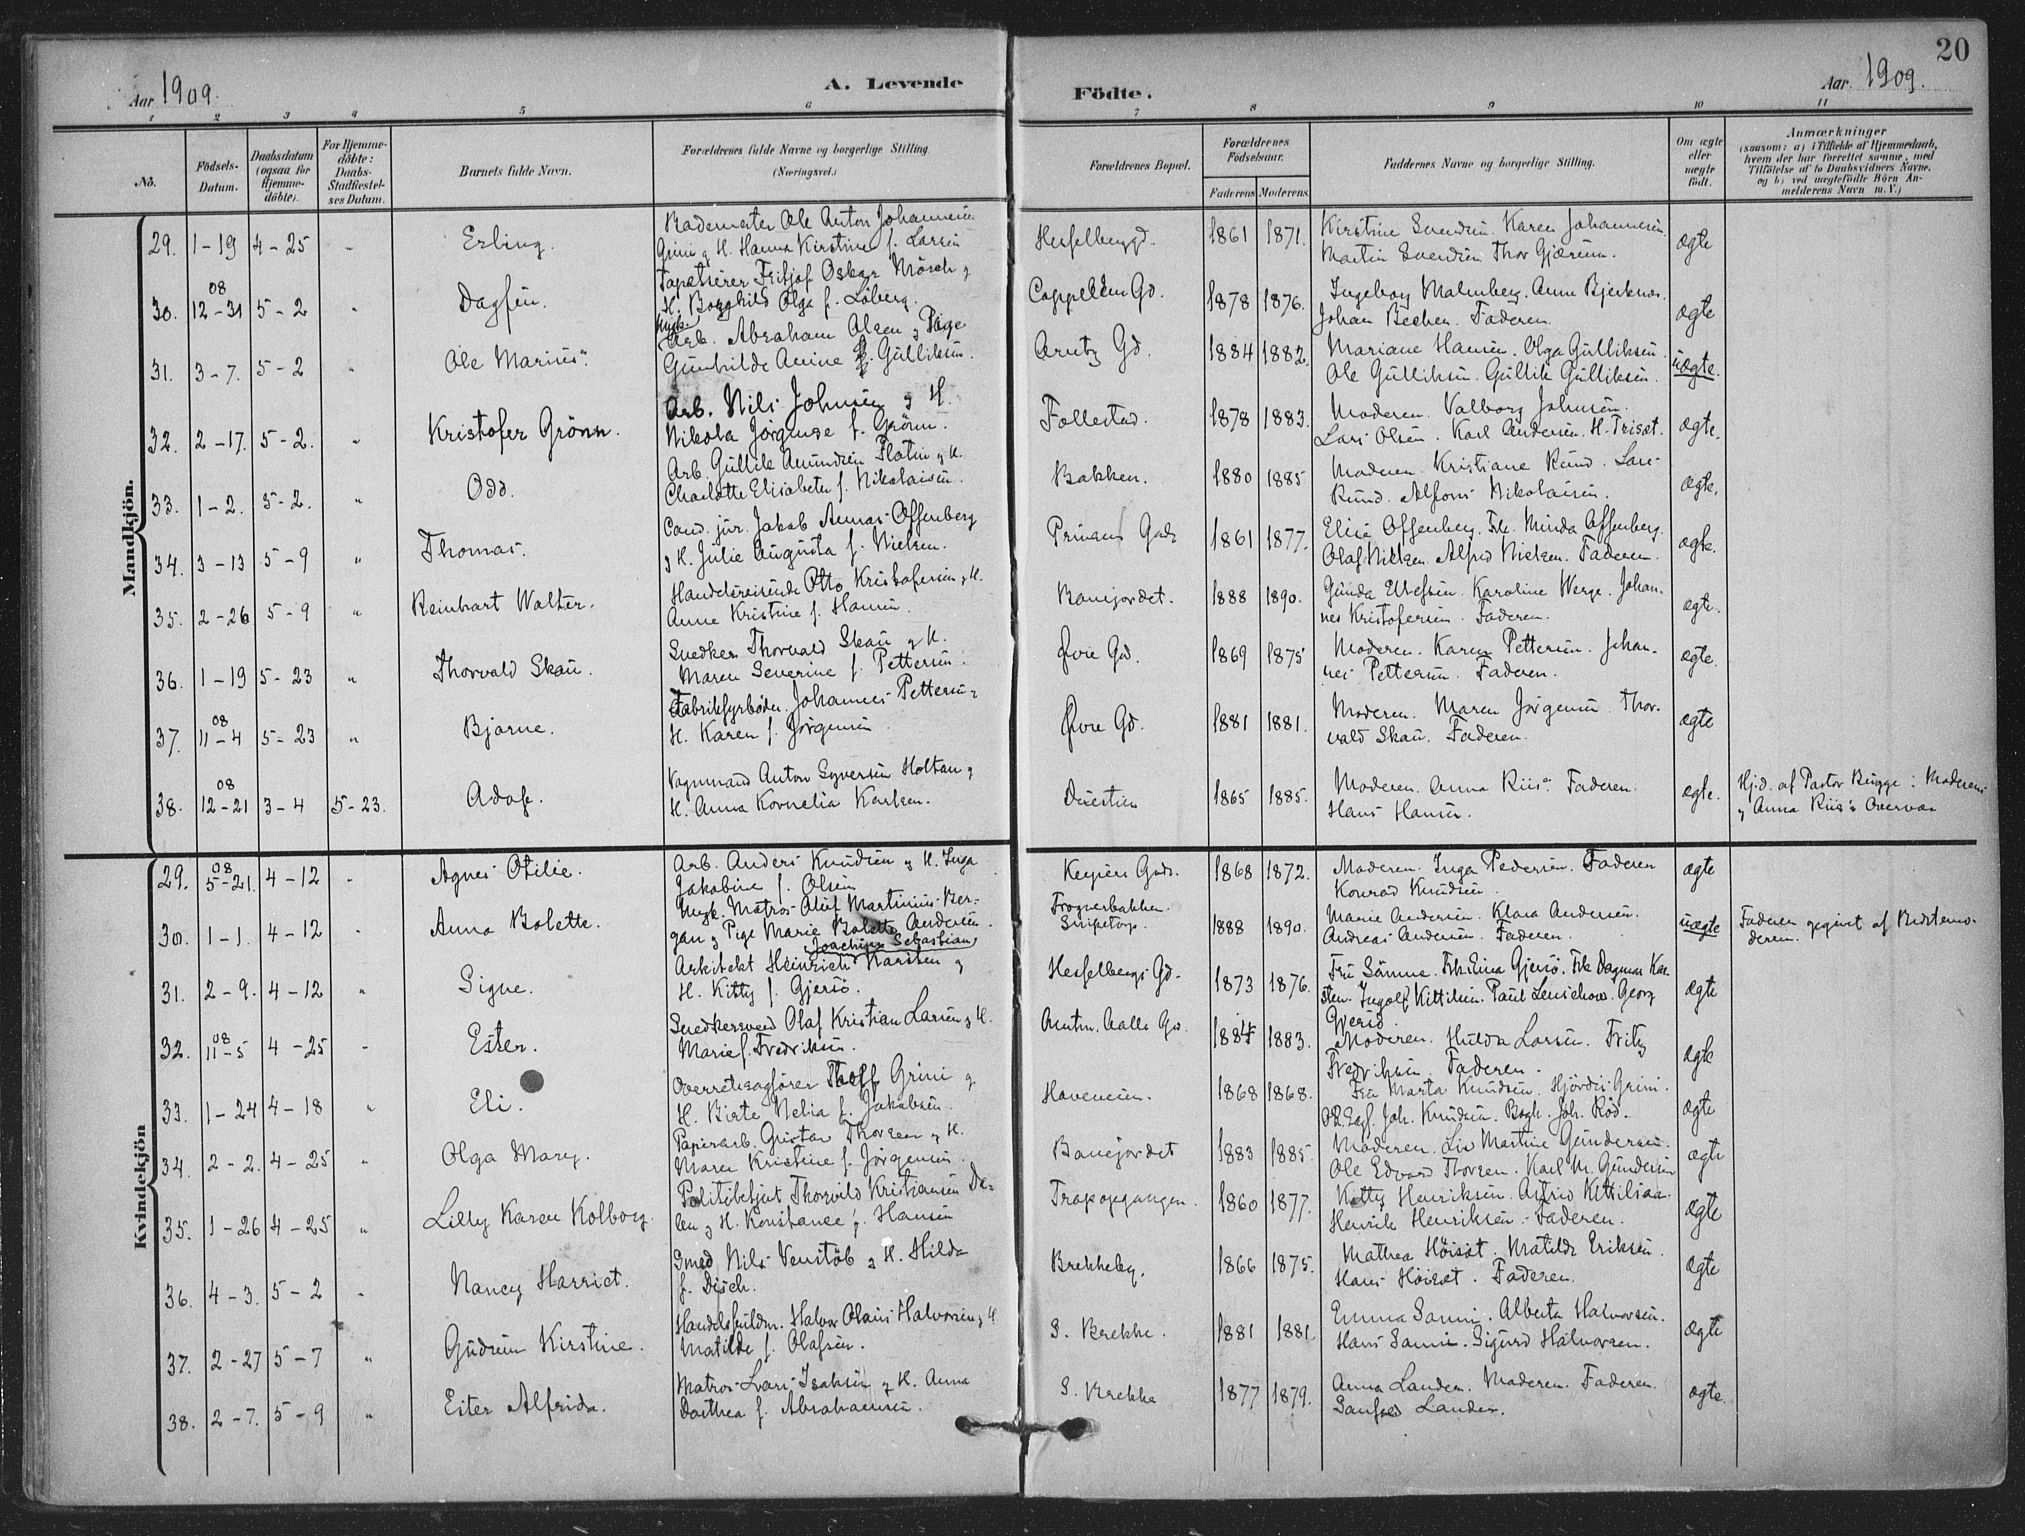 20
Aar 1909.
A. Levende
Födte.
Aar 1909.
1 2 3 4 5 6 7 8 9 10 11
No.
Födsels-Datum.
Daabsdatum (ogsaa for Hjemmedöbte).
For Hjemmedöbte: Daabs-Stadfæstelses Datum.
Barnets fulde Navn.
Forældrenes fulde Navne og borgerlige Stilling. (Næringsvei.)
Forældrenes Bopæl.
Forældrenes Födselsaar.
Faderens. Moderens.
Faddernes Navne og borgerlige Stilling.
Om ægte eller uægte födt.
Anmærkninger
(saasom: a) i Tilfælde af Hjemmedaab, hvem der har forrettet samme, med Tilföielse af to Daabsvidners Navne, og b) ved uægtefödte Börn Anmelderens Navn m. V.)
Mandkjön.
29. 1-19 4-25 " Erling.
Ole Anton Johannesen
Grini & H. Hanna Kirstine f. Larsen
Hesselberggd. 1861 1871. Kirstine Svendsen. Karen Johannesen.
Martin Svendsen Thor Gjærum. ægte
30. 08 12-31 5-2 " Dagfin.
Tapetserer Fritjof Oskar Mörch &
H. Borghild Olga f. Löberg.
Cappelen Gd. 1878 1876. Ingeborg Malmberg. Anne Bjerknæs.
Johan Becken. Faderen. ægte
31. 3-7. 5-2 " Ole Marius.
Ungk. Arb. Abraham Olsen & Pige
Gunhilde Amine Gulliksen.
Arntz Gd. 1884 1882. Mariane Hansen. Olga Gulliksen.
Ole Gulliksen. Gullik Gulliksen. uægte.
32. 2-17. 5-2. " Kristofer Grönn.
Arb. Nils Johnsen & H.
Nikola Jörgine f. Grönn.
Follestad. 1878 1883. Moderen. Valborg Johnsen.
Lars Olsen. Karl Andersen. H. Trisæt. ægte.
33. 1-2. 5-2. " Odd.
Arb. Gullik Amundsen Flatin & H.
Charlotte Elisabeth f. Nikolaisen.
Bakken. 1880 1885 Moderen. Kristiane Rund. Lars
Rund. Alfons Nikolaisen. ægte.
34. 3-13 5-9 " Thomas.
Cand. jur. Jakob Aamas Offenberg
& H. Julie Augusta f. Nielsen.
Prinsens Gade 1861 1877. Elise Offenberg. Frk. Minda Offenberg.
Olaf Nielsen Alfred Nielsen. Faderen. ægte.
35. 2-26 5-9 " Reinhart Walter.
Handelsreisende Otto Kristofersen & H.
Anne Kristine f. Hansen.
Banejordet. 1888 1890. Gunda Ellefsen. Karoline Werge. Johan-
nes Kristofersen. Faderen. ægte.
36. 1-19 5-23 " Thorvald Skau.
Snedker Thorvald Skau & H.
Maren Severine f. Pettersen.
Övre Gd. 1869 1875 Moderen. Karen Pettersen. Johan-
nes Pettersen. Faderen. ægte.
37. 08 11-4 5-23 " Bjarne.
Fabriksfyrböder Johannes Pettersen &
H. Karen f. Jörgensen
Övre Gd. 1881 1881. Moderen. Maren Jörgensen. Thor-
vald Skau. Faderen. ægte
38. 08 12-21 3-4 5-23. Adolf.
Vognmand Anton Syversen Holtan &
H. Anna Kornelia Karlsen.
Duestien 1865 1885. Moderen. Anna Riis. Faderen.
Hans Hansen. ægte.
Hjd. af Pastor Bugge i Moderens
& Anna Riis's Overvær
Kvindekjön
29. 08 5-21. 4-12 " Agnes Otilie.
Arb. Anders Knudsen & H. Inga
Jakobine f. Olsen
Keysers Gade. 1868 1872. Moderen. Inga Pedersen. Faderen
Konrad Knudsen. ægte
30. 1-1. 4-12 " Anna Bolette.
Ungk. Matros Oluf Martinius Ber-
gan & Pige Marie Bolette Andersen.
Frognerbakken.
Snipetorp. 1888 1890. Marie Andersen. Klara Andersen.
Andreas Andersen. Faderen. uægte
Faderen opgivet af Bedstemo-
deren.
31. 2-9. 4-12 " Signe.
Joachim Sebastian
Arkitekt Heinrich Karsten &
H. Kitty f. Gjersö.
Hesselbergs Gd. 1873 1876. Fru Sömme. Frk. Eina Gjersö. Frk Dagmar Kar-
sten. Ingolf Kittilsen. Paul Lenschow. Georg
Gjersö. ægte
32. 08 11-5 4-25 " Ester.
Snedkersvend Olaf Kristian Larsen & H.
Marie f. Fredriksen.
Amtm. Aalls Gd. 1884 1883. Moderen. Hulda Larsen. Fritz
Fredriksen. Faderen. ægte
33. 1-24 4-18 " Eli.
Overretssagfører Tholf Grini &
H. Birte Nelia f. Jakobsen.
Haveveien. 1868 1868. Fru Marta Knudsen. Hjördis Grini.
OR.Sagf. Joh. Knudsen. Bogh. Joh. Röd. ægte
34. 2-2. 4-25 " Olga Mary.
Papirarb. Gustav Thorsen & H.
Maren Kristine f. Jörgensen.
Banejordet 1883 1885. Moderen. Liv Martine Gundersen.
Ole Edvard Thorsen. Karl M. Gundersen ægte
35. 1-26 4-25 " Lilly Karen Kolborg.
Politibetjent Thorvild Kristiansen Da-
len & H. Konstance f. Hansen
Trapopgangen. 1860 1877. Kitty Henriksen. Astrid Kittilsen.
Henrik Henriksen. Faderen. ægte
36. 4-3. 5-2 " Nancy Harriet.
Smed Nils Venstöb & H. Hilda
f. Disch.
Brekkeby. 1866 1875. Mathea Höisæt. Matilde Eriksen.
Hans Höisæt. Faderen. ægte
37. 2-27 5-7 " Gudrun Kirstine.
Handelsfuldm. Halvor Olaus Halvorsen & H
Matilde f. Olafsen.
S. Brekke. 1881 1881 Emma Sanni. Alberta Halvorsen.
Hans Sanni. Sigurd Halvorsen. ægte
38. 2-7. 5-9 " Ester Alfrida.
Matros Lars Isaksen & H. Anna
Dorthea f. Abrahamsen.
S. Brekke 1877 1879. Anna Landen. Moderen. Faderen.
Landen. ægte.